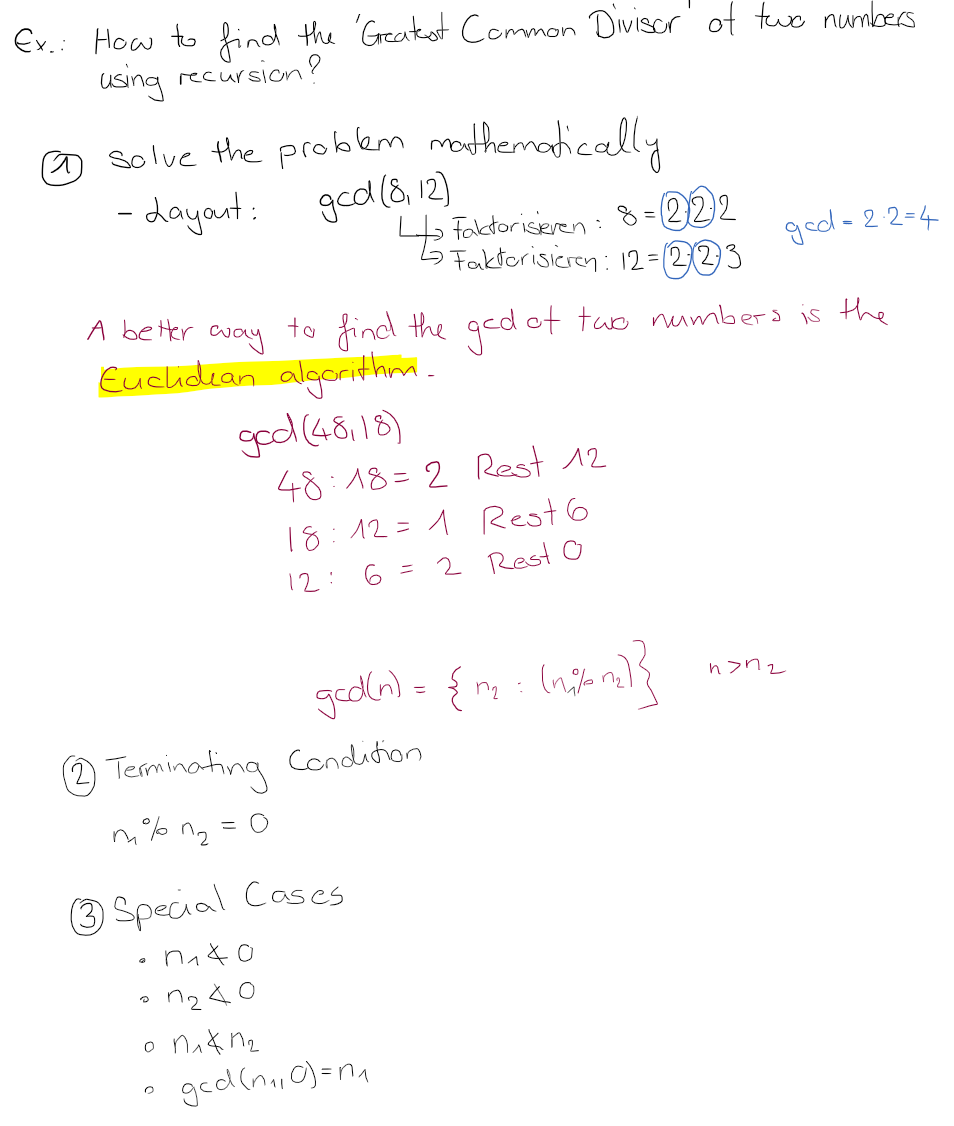 Ex.: How to find the 'Greatest Common Divisor' of two numbers
using recursion?
① Solve the problem mathematically
- Layout: gcd(8, 12)
↳ Faktorisieren: 8 = 2·2·2
↳ Faktorisieren: 12 = 2·2·3
gcd = 2·2=4
A better way to find the gcd of two numbers is the
Euclidean algorithm.
gcd(48,18)
48 : 18 = 2 Rest 12
18 : 12 = 1 Rest 6
12 : 6 = 2 Rest 0
gcd(n) = { n₂ : (n₁%n₂)} n>n₂
② Terminating Condition
n₁ % n₂ = 0
③ Special Cases
• n₁ ≮ 0
• n₂ ≮ 0
• n₁ ≮ n₂
• gcd(n₁, 0) = n₁